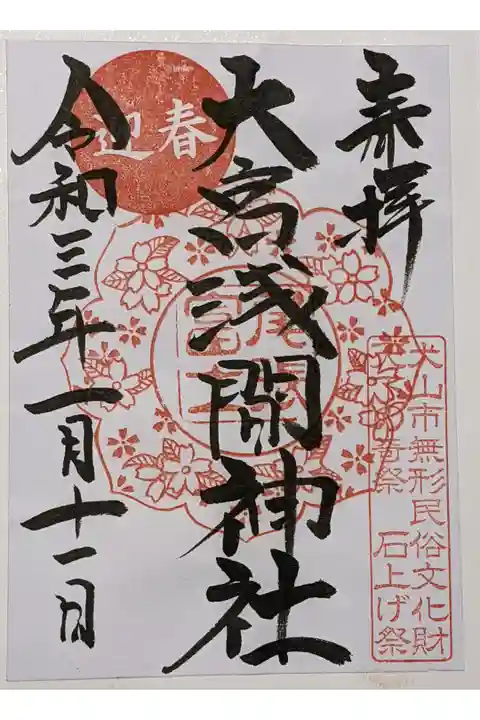 奉拝
犬山市無形民俗文化財
石上げ祭
大宮浅間神社
尾張富士
迎春
令和三年一月十一日